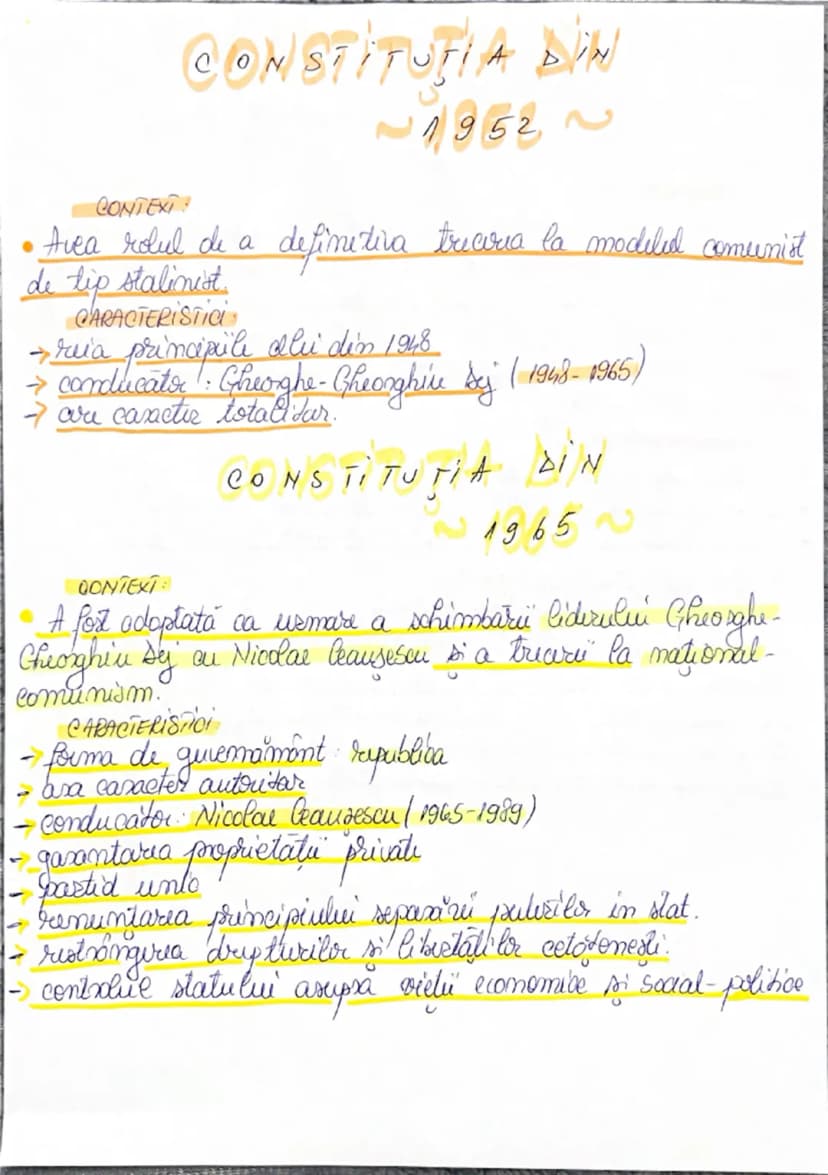 CONSTITUȚIA DIN
~ 1952 ~
CONTEXT:
• Avea rolul de a definitiva trecerea la modelul comunist
de tip stalinist.
CARACTERISTICI:
→ reia principiile celei din 1948
→ conducător: Gheorghe-Gheorghiu Dej (1948-1965)
→ are caracter totalitar.
CONSTITUȚIA DIN
~ 1965 ~
CONTEXT:
• A fost adoptată ca urmare a schimbării liderului Gheorghe-
Gheorghiu Dej cu Nicolae Ceaușescu și a trecerii la național-
comunism.
CARACTERISTICI
→ forma de guvernământ: republica
→ are caracter autoritar
→ conducător: Nicolae Ceaușescu (1965-1989)
→ garantarea proprietății private
→ partid unic
→ renunțarea principiului separării puterilor în stat.
→ restrângerea drepturilor și libertăților cetățenești.
→ controlul statului asupra vieții economice și social-politice